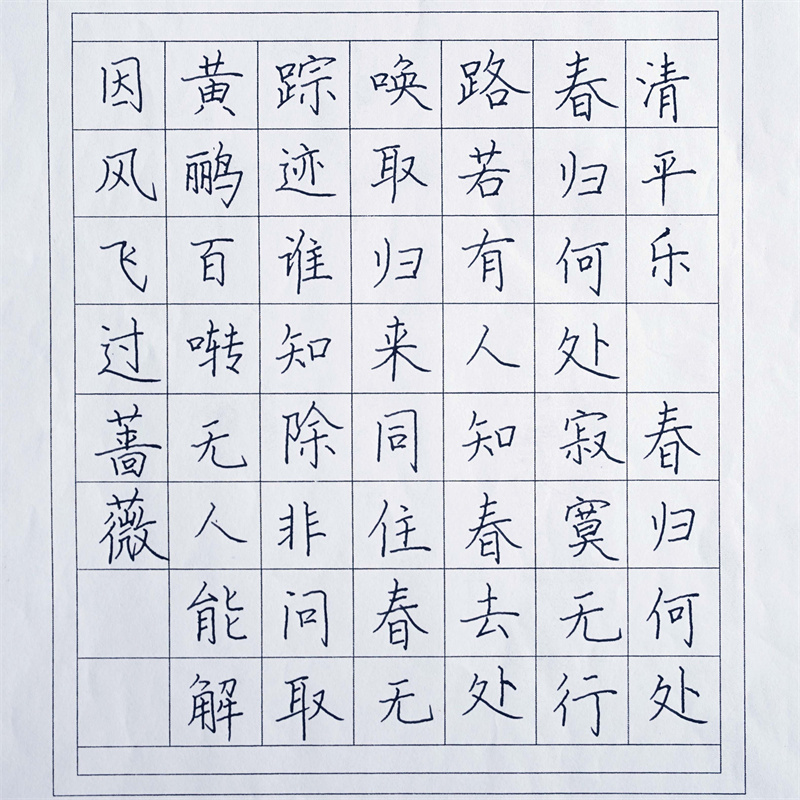 清平乐 春归何处
春归何处寂寞无行
路若有人知春去处
唤取归来同住春无
踪迹谁知除非问取
黄鹂百啭无人能解
因风飞过蔷薇